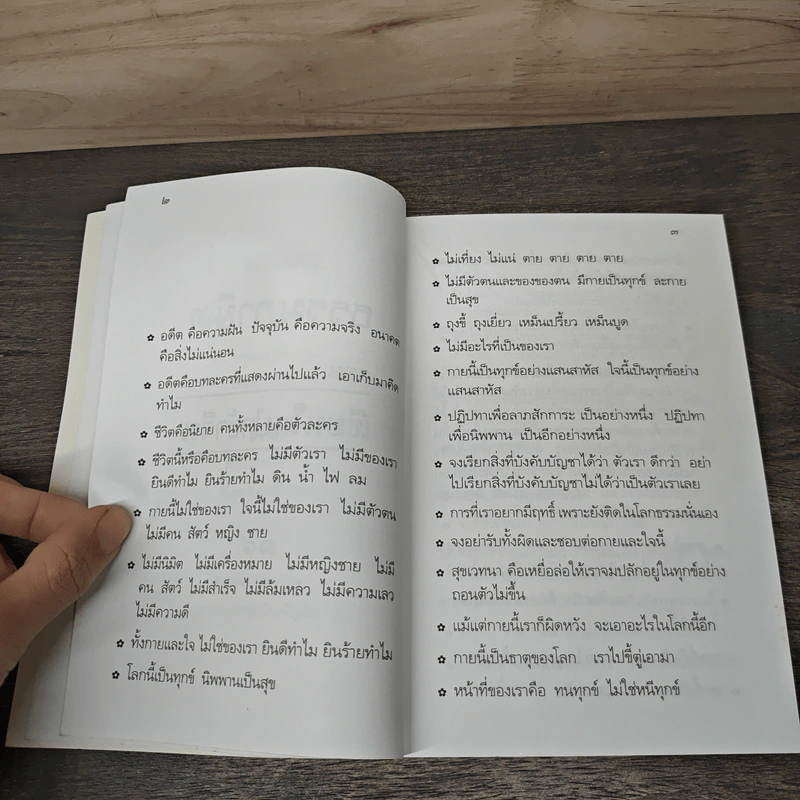 ๒
✿ อดีต คือความฝัน ปัจจุบัน คือความจริง อนาคต
คือสิ่งไม่แน่นอน
✿ อดีตคือบทละครที่แสดงผ่านไปแล้ว เอาเก็บมาคิด
ทำไม
✿ ชีวิตคือนิยาย คนทั้งหลายคือตัวละคร
✿ ชีวิตนี้หรือคือบทละคร ไม่มีตัวเรา ไม่มีของเรา
ยินดีทำไม ยินร้ายทำไม ดิน น้ำ ไฟ ลม
✿ กายนี้ไม่ใช่ของเรา ใจนี้ไม่ใช่ของเรา ไม่มีตัวตน
ไม่มีคน สัตว์ หญิง ชาย
✿ ไม่มีนิมิต ไม่มีเครื่องหมาย ไม่มีหญิงชาย ไม่มี
คน สัตว์ ไม่มีสำเร็จ ไม่มีล้มเหลว ไม่มีความเลว
ไม่มีความดี
✿ ทั้งกายและใจ ไม่ใช่ของเรา ยินดีทำไม ยินร้ายทำไม
✿ โลกนี้เป็นทุกข์ นิพพานเป็นสุข
๓
✿ ไม่เที่ยง ไม่แน่ ตาย ตาย ตาย ตาย
✿ ไม่มีตัวตนและของของตน มีกายเป็นทุกข์ ละกาย
เป็นสุข
✿ ถุงขี้ ถุงเยี่ยว เหม็นเปรี้ยว เหม็นบูด
✿ ไม่มีอะไรที่เป็นของเรา
✿ กายนี้เป็นทุกข์อย่างแสนสาหัส ใจนี้เป็นทุกข์อย่าง
แสนสาหัส
✿ ปฏิปทาเพื่อลาภสักการะ เป็นอย่างหนึ่ง ปฏิปทา
เพื่อนิพพาน เป็นอีกอย่างหนึ่ง
✿ จงเรียกสิ่งที่บังคับบัญชาได้ว่า ตัวเรา ดีกว่า อย่า
ไปเรียกสิ่งที่บังคับบัญชาไม่ได้ว่าเป็นตัวเราเลย
✿ การที่เราอยากมีฤทธิ์ เพราะยังติดในโลกธรรมนั่นเอง
✿ จงอย่ารับทั้งผิดและชอบต่อกายและใจนี้
✿ สุขเวทนา คือเหยื่อล่อให้เราจมปลักอยู่ในทุกข์อย่าง
ถอนตัวไม่ขึ้น
✿ แม้แต่กายนี้เราก็ผิดหวัง จะเอาอะไรในโลกนี้อีก
✿ กายนี้เป็นธาตุของโลก เราไปขี้ตู่เอามา
✿ หน้าที่ของเราคือ ทนทุกข์ ไม่ใช่หนีทุกข์